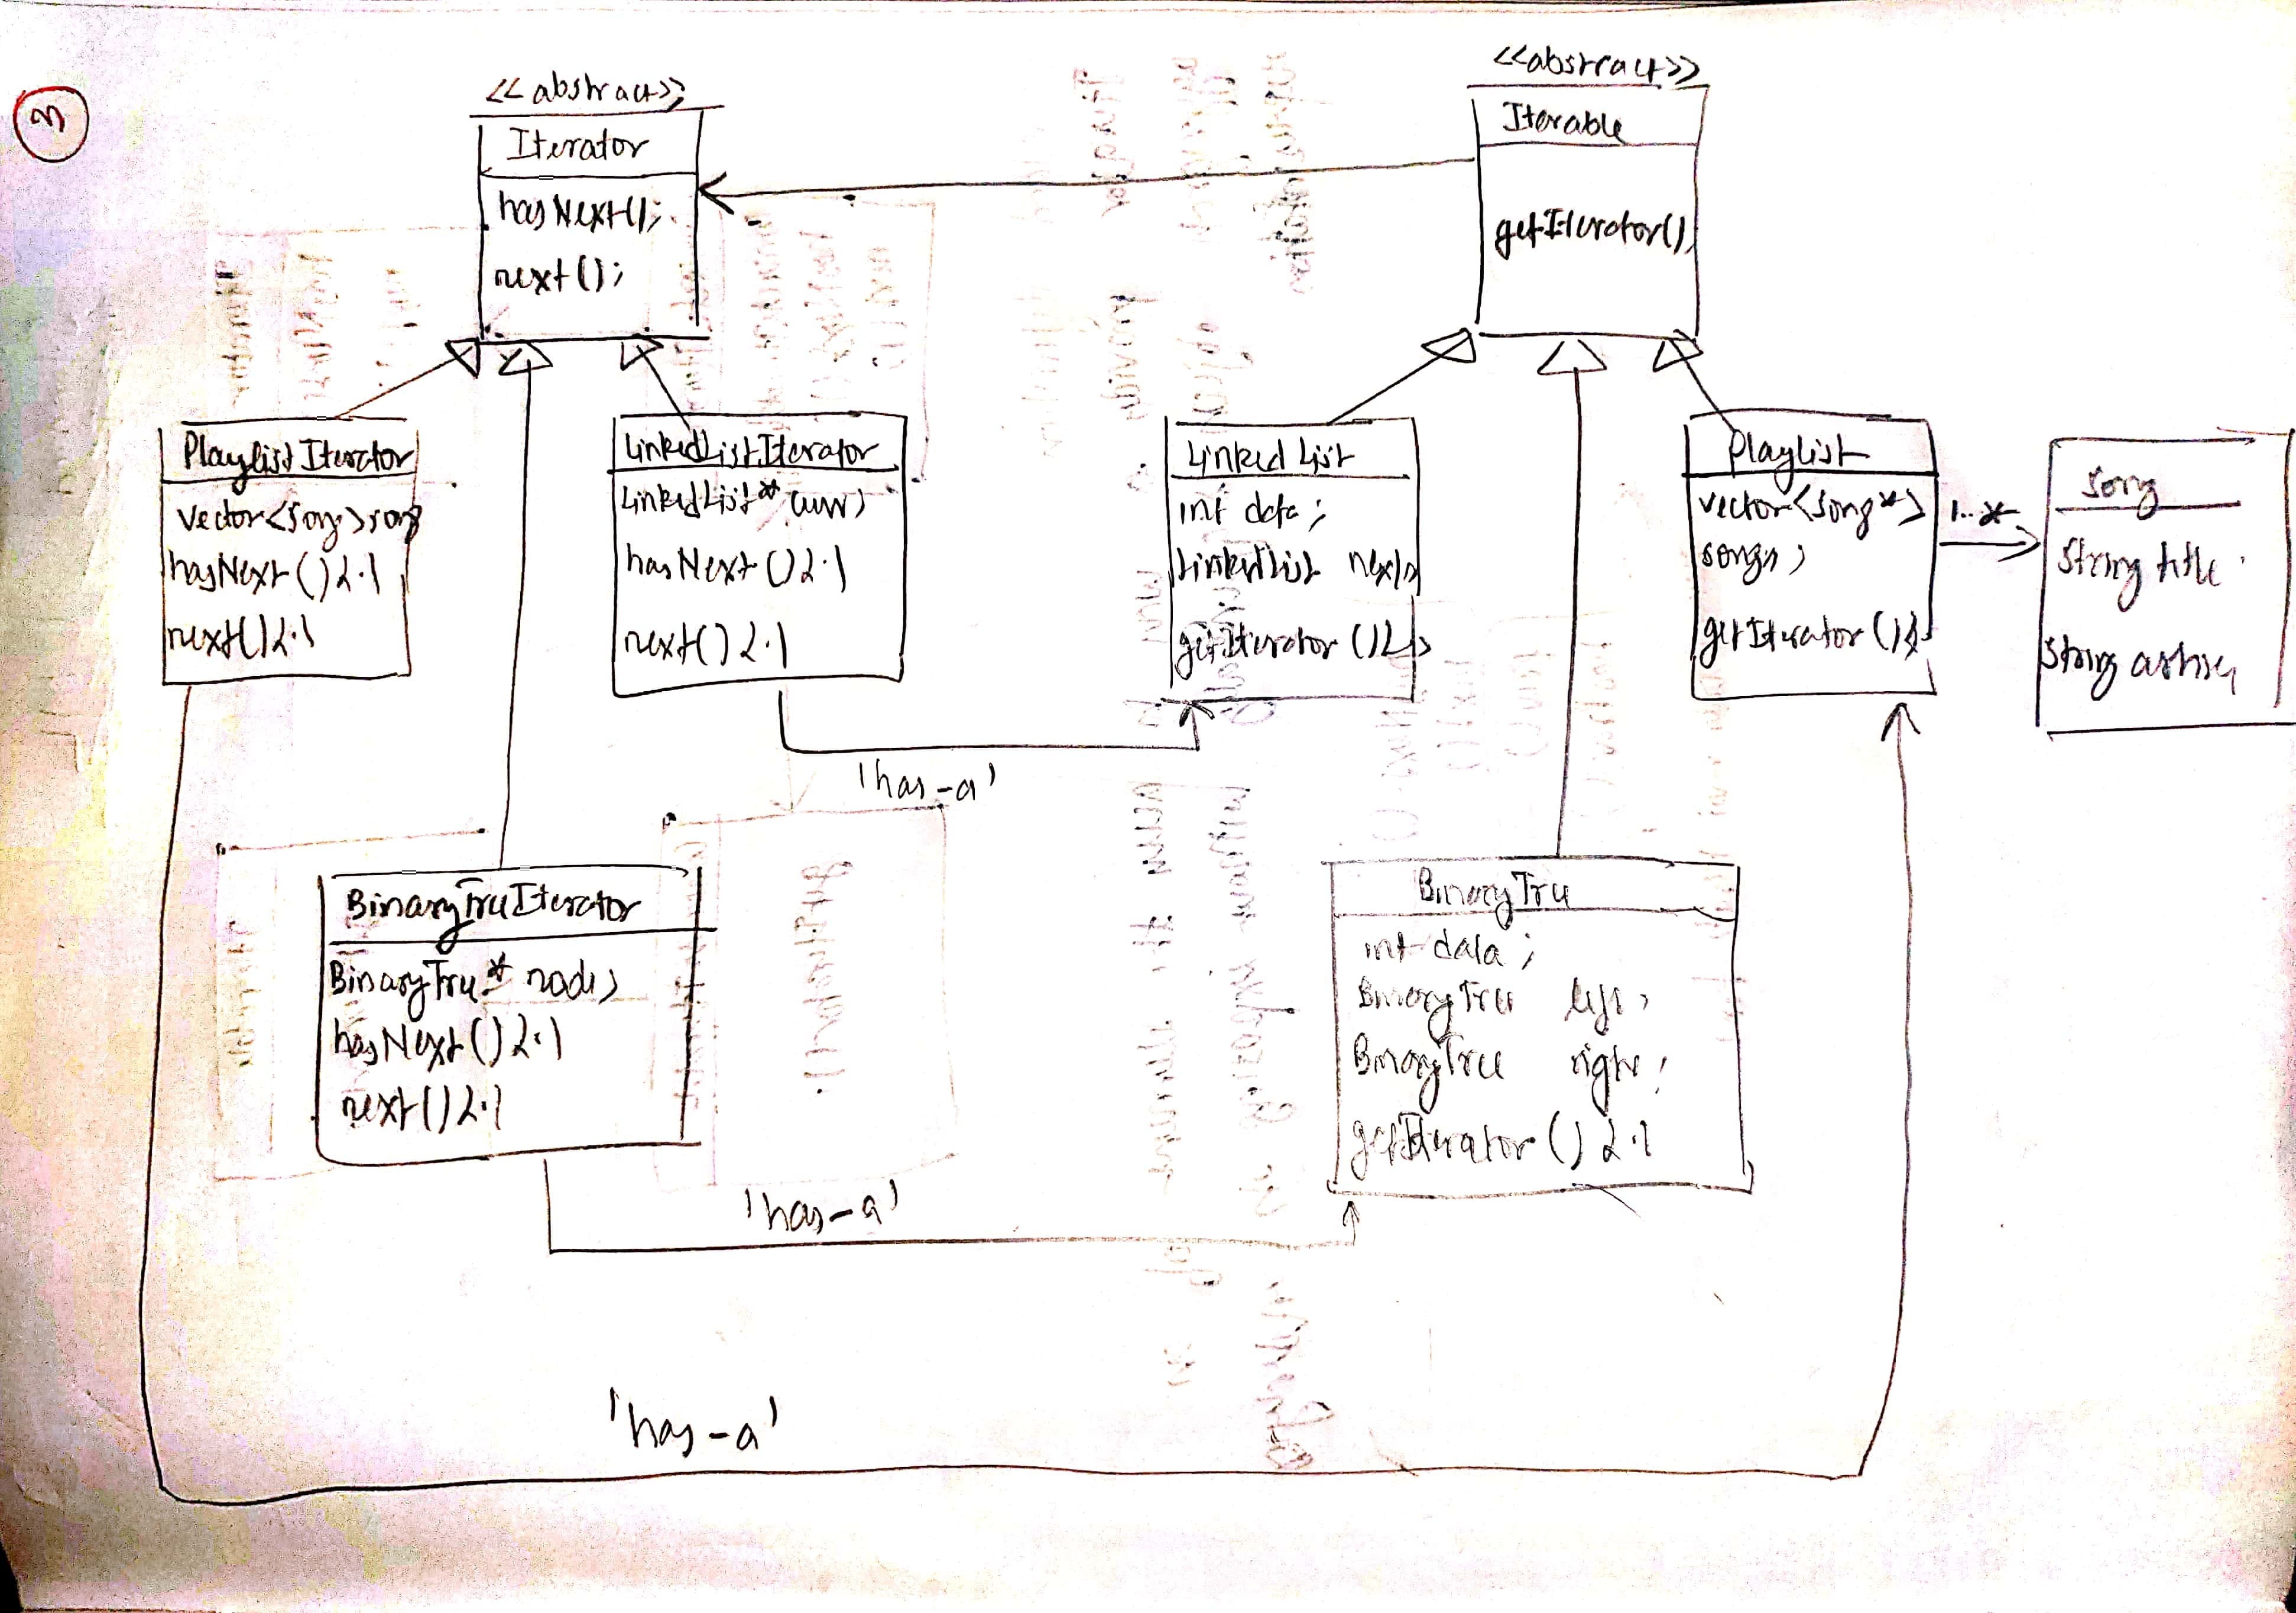 3
<<abstract>>
Iterator
hasNext();
next();
<<abstract>>
Iterable
getIterator();
PlaylistIterator
vector<song>song
hasNext(){.}
next(){.}
LinkedListIterator
LinkedList* curr;
hasNext(){.}
next(){.}
Linked List
int data;
LinkedList next;
getIterator(){}
Playlist
vector<song*>
songs;
getIterator(){}
1..*
song
string title
string artist;
'has-a'
BinaryTreeIterator
BinaryTree* node;
hasNext(){.}
next(){.}
BinaryTree
int data;
BinaryTree left;
BinaryTree right;
getIterator(){.}
'has-a'
'has-a'